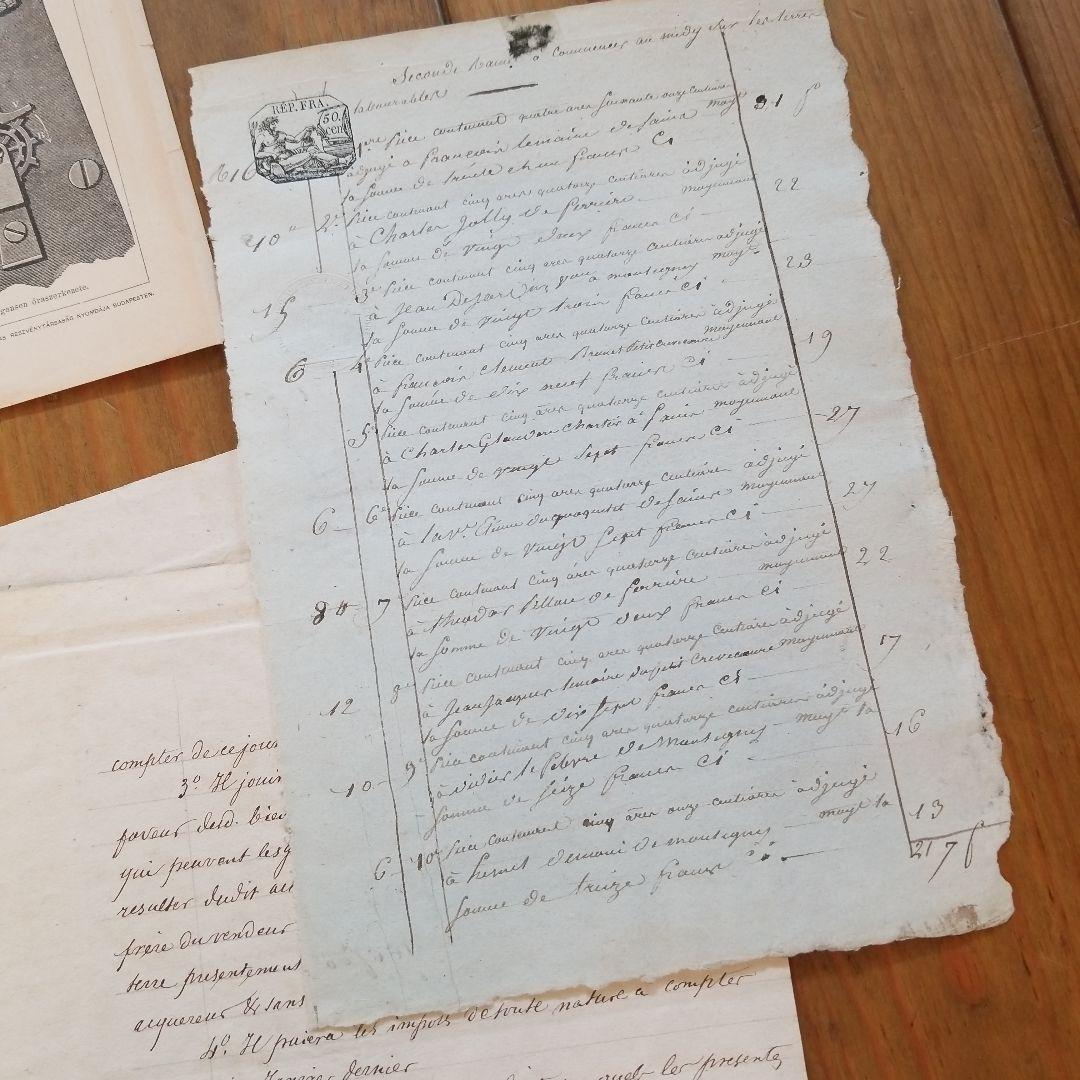 gensen óraszerkezete.
RÉSZVÉNYTÁRSASÁG NYOMDÁJA BUDAPESTEN.
Seconde à commencer au midy sur les terres
labourables
RÉP. FRA.
50.
cent
1ere Pièce contenant quatre ares soixante onze centiares
adjugé à François Lemaire de moyt 31 f
la somme de trente et un francs ci
10 2e Pièce contenant cinq ares quatorze centiares adjugé
à Charles Jolly de ferrière moyennant 22
la somme de vingt deux francs ci
15 3e Pièce contenant cinq ares quatorze centiares adjugé
à Jean à montigny moyt 23
la somme de vingt trois francs ci
6 4e Pièce contenant cinq ares quatorze centiares adjugé
à François Clement moyennant 19
la somme de dix neuf francs ci
5e Pièce contenant cinq ares quatorze centiares adjugé
à Charles moyennant 27
la somme de vingt sept francs ci
6 6e Pièce contenant cinq ares quatorze centiares adjugé
à la Ve moyennant 27
la somme de vingt sept francs ci
7 Pièce contenant cinq ares quatorze centiares adjugé
à de ferrière moyennant 22
la somme de vingt deux francs ci
12 8e Pièce contenant cinq ares quatorze centiares adjugé
à Jean Jacques Lemaire du petit Crevecoeure moyennant 17
la somme de dix sept francs ci
10 9e Pièce contenant cinq ares quatorze centiares adjugé
à Didier le febvre de Montigny moyt la 16
somme de seize francs ci
6 10e Pièce contenant cinq ares onze centiares adjugé
à de montigny moyt la 13
somme de treize francs ci
217 f
compter de ce jour
3o. Il joui
faveur dud. bien
qui peuvent les
resulter dudit
frère du vendeur
terre presentement
acquereur & sans
4o. Il paiera les impots de toute nature a compter
Janvier dernier
les presentes